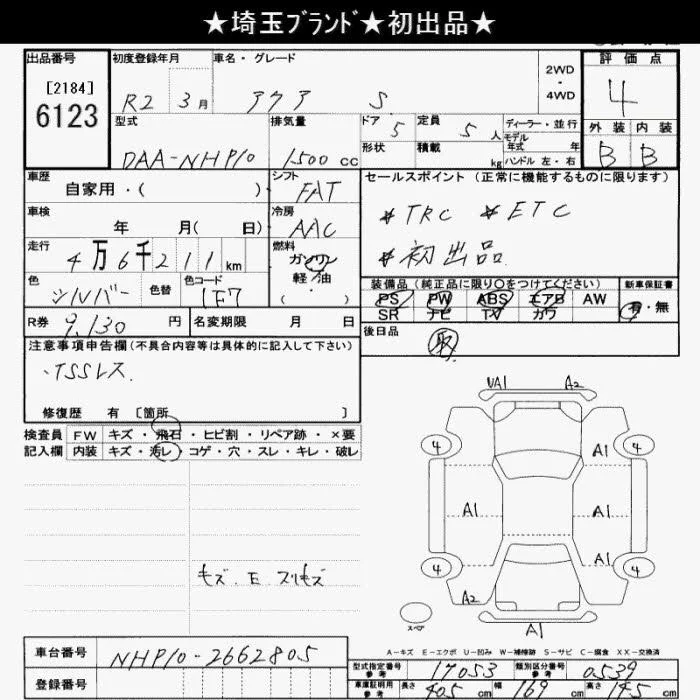 ★埼玉ﾌﾞﾗﾝﾄﾞ★初出品★
出品番号 初度登録年月 車名・グレード 2WD ・ 4WD 評価点
[2184]
6123
R2 3月 アクア S 4
型式 排気量 ドア 5 定員 5人 ディーラー・並行 外装 内装
モデル年式 年
DAA-NHP10 1500cc 形状 積載 kg ハンドル 左・右 B B
車歴 自家用・( ) シフト FAT セールスポイント (正常に機能するものに限ります)
車検 年 月( 日) 冷房 AAC *TRC *ETC
走行 4万6千211km 燃料 ガソリン 軽油 ・( ) *初出品
色 シルバー 色替 色コード 1F7 装備品 (純正品に限り○をつけてください) 新車保証書
PS PW ABS エアB AW 有・無
SR ナビ TV カワ
R券 9,130円 名変期限 月 日 後日品
取
注意事項申告欄(不具合内容等は具体的に記入して下さい)
・TSSレス
修復歴 有 [箇所 ]
検査員 FW キズ・飛石・ヒビ割・リペア跡・×要
記入欄 内装 キズ・汚レ・コゲ・穴・スレ・キレ・破レ
UA1 A2
4 4
A1
A1 A1
A1
4 4
A2
キズ.E.スリキズ
スペア
A1
A-キズ E-エクボ U-凹み W-補修跡 S-サビ C-腐食 XX-交換済
車台番号 NHP10-2662805
型式指定番号 17053 類別区分番号 0539
登録番号
車庫証明用参考 長さ 405cm 幅 169cm 高さ 145cm